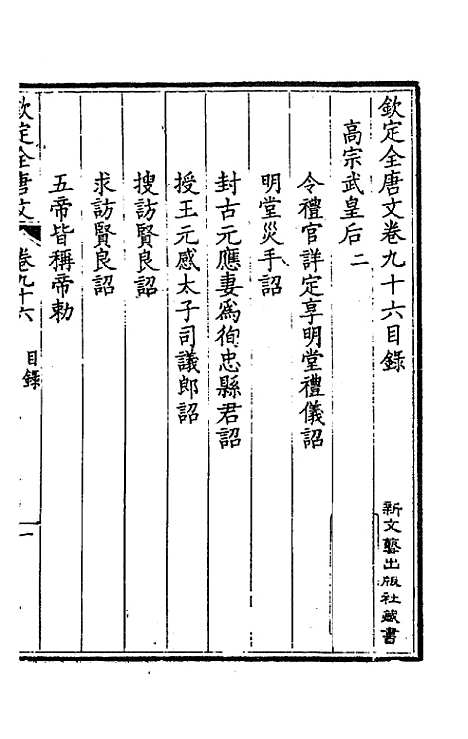 欽定全唐文卷九十六目錄
高宗武皇后二
令禮官詳定享明堂禮儀詔
明堂災手詔
封古元應妻為徇忠縣君詔
授王元感太子司議郎詔
搜訪賢良詔
求訪賢良詔
五帝皆稱帝勅
欽定全唐文
卷九十六
目錄
一
新文藝出版社藏書